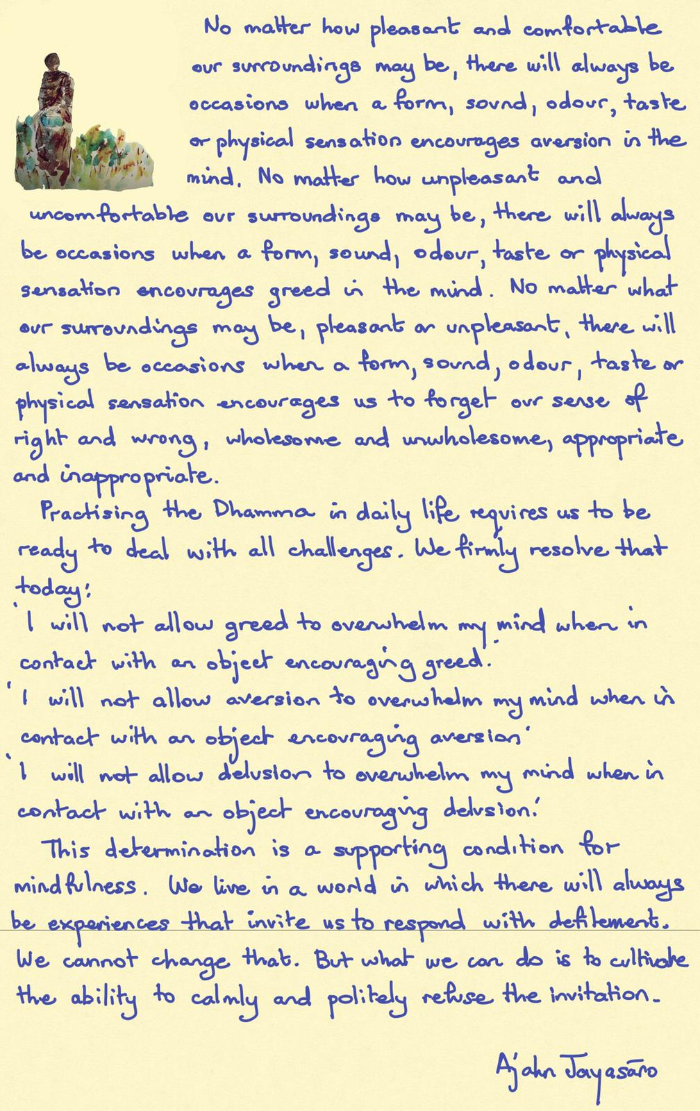 No matter how pleasant and comfortable
our surroundings may be, there will always be
occasions when a form, sound, odour, taste
or physical sensation encourages aversion in the
mind. No matter how unpleasant and
uncomfortable our surroundings may be, there will always
be occasions when a form, sound, odour, taste or physical
sensation encourages greed in the mind. No matter what
our surroundings may be, pleasant or unpleasant, there will
always be occasions when a form, sound, odour, taste or
physical sensation encourages us to forget our sense of
right and wrong, wholesome and unwholesome, appropriate
and inappropriate.
Practising the Dhamma in daily life requires us to be
ready to deal with all challenges. We firmly resolve that
today:
'I will not allow greed to overwhelm my mind when in
contact with an object encouraging greed.'
'I will not allow aversion to overwhelm my mind when in
contact with an object encouraging aversion'
'I will not allow delusion to overwhelm my mind when in
contact with an object encouraging delusion.'
This determination is a supporting condition for
mindfulness. We live in a world in which there will always
be experiences that invite us to respond with defilement.
We cannot change that. But what we can do is to cultivate
the ability to calmly and politely refuse the invitation.
Ajahn Jayasāro